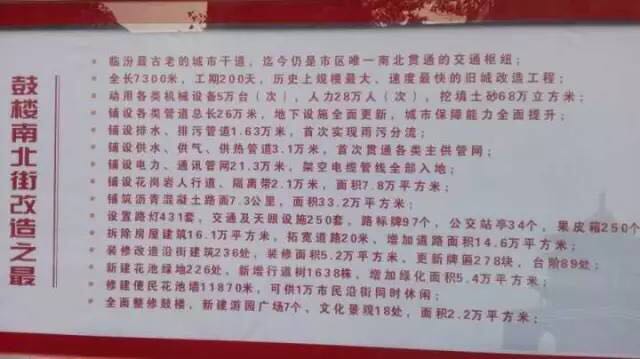 鼓楼南北街改造之最
临汾最古老的城市干道，迄今仍是市区唯一南北贯通的交通枢纽；
全长7300米，工期200天，历史上规模最大、速度最快的旧城改造工程；
动用各类机械设备5万台（次），人力28万人（次），挖填土砂68万立方米；
铺设各类管道总长26万米，地下设施全面更新，城市保障能力全面提升；
铺设排水、排污管道1.63万米，首次实现雨污分流；
铺设供水、供气、供热管道3.1万米，首次贯通各类主供管网；
铺设电力、通讯管网21.3万米，架空电缆管线全部入地；
铺设花岗岩人行道、隔离带2.1万米，面积7.8万平方米；
铺筑沥青混凝土路面7.3公里，面积33.2万平方米；
设置路灯431套，交通及天眼设施250套，路标牌97个，公交站亭34个，果皮箱250个
拆除房屋建筑16.1万平方米，拓宽道路20米，增加道路面积14.6万平方米；
装修改造沿街建筑236处，装修面积5.2万平方米，更新牌匾278块，台阶89处；
新建花池绿地226处，新增行道树1638株，增加绿化面积5.4万平方米；
修建便民花池墙11870米，可供1万市民沿街同时休闲；
全面整修鼓楼，新建游园广场7个、文化景观18处，面积2.2万平方米；